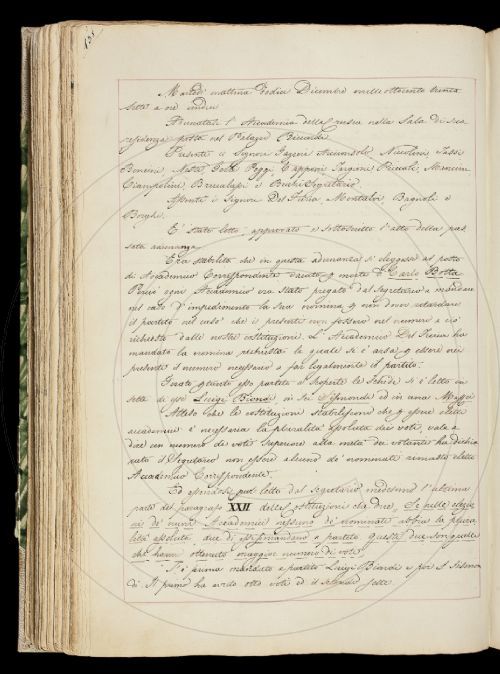 131
Martedì mattina Dodici Dicembre mille ottocento trenta
sette a ore undici
Adunatasi l'Accademia della Crusca nella Sala di sua
residenza posta nel Palazzo Riccardi
Presenti i Signori Zannoni Niccolini Tassi
Bencini, Nesti Poggi Capponi Targioni
Ciampolini, Becchi Segretario
Assenti i Signori Del Furia, Montalvi, Bagnoli e
Borghi.
E' stato letto approvato e sottoscritto l'atto della pas
sata adunanza.
Era stabilito che in questa adunanza si eleggesse al posto
di Accademico Corrispondente vacato p morte di Carlo Botta
Perciò ogni Accademico era stato pregato dal Segretario a mandare
nel caso d'impedimento la sua nomina p non dover ritardare
il partito nel caso che i presenti non fossero nel numero a ciò
richiesto dalle nostre costituzioni. L'Accademico Del Furia ha
mandato la nomina prescritta la quale si è arsa p essere nei
presenti il numero necessario a far legalmente il partito.
esso partito e scoperte le schede si è letto in
sette di esse Luigi Biondi in sei Sismondi ed in una Maggi
Atteso che le costituzioni stabiliscono che p essere eletto
accademico è necessaria la pluralità assoluta dei voti, vale a
dire un numero di voti superiore alla metà dei votanti ha dichia
rato il Segretario non essere alcuno dei nominati rimasto eletto
Accademico Corrispondente.
Ed essendosi poi letto dal segretario medesimo l'ultima
parte del paragrafo XXII delle costituzioni che dice, Se nelle elezio
ni de' nuovi Accademici nessuno de' nominati abbia la plura
lità assoluta due si rimandano a partito queste due son quelle
che hanno ottenuto maggior numero di voti
Si è prima mandato a partito Luigi Biondi e poi il Sismon
di Il primo ha avuto otto voti ed il secondo sette.